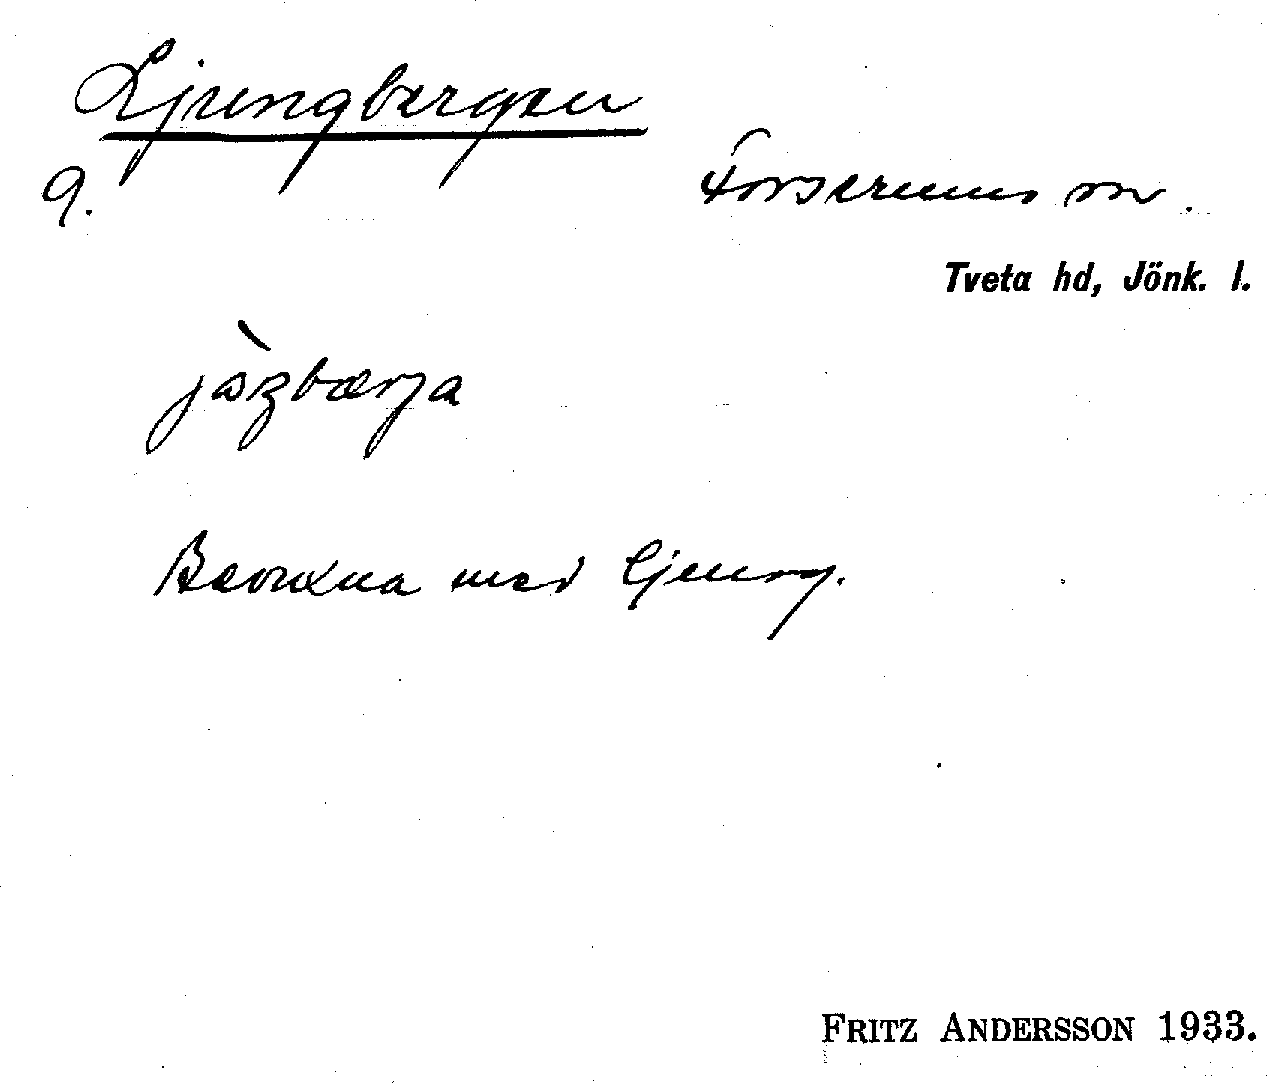 Ljungbergen
9.
Forserums sn.
Tveta hd, Jönk. l.
Bevuxna med ljung.
FRITZ ANDERSSON 1933.